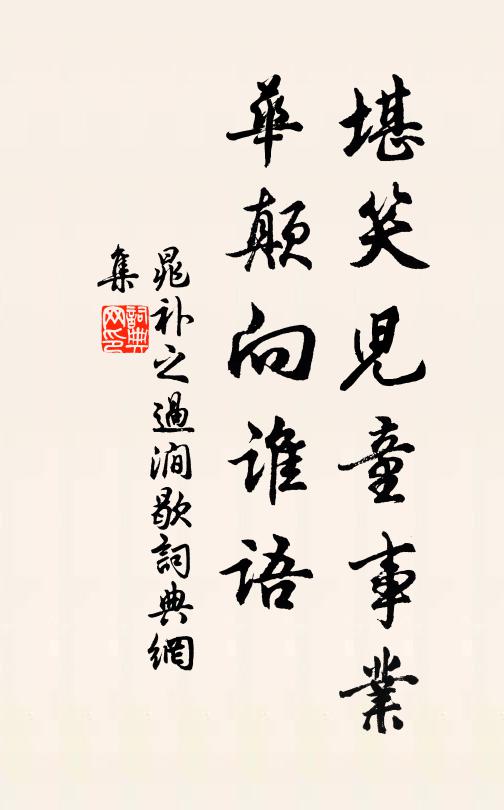 堪笑児童事業
華顛向誰語
晁补之過澗歇詞典網
集
詞典
网印